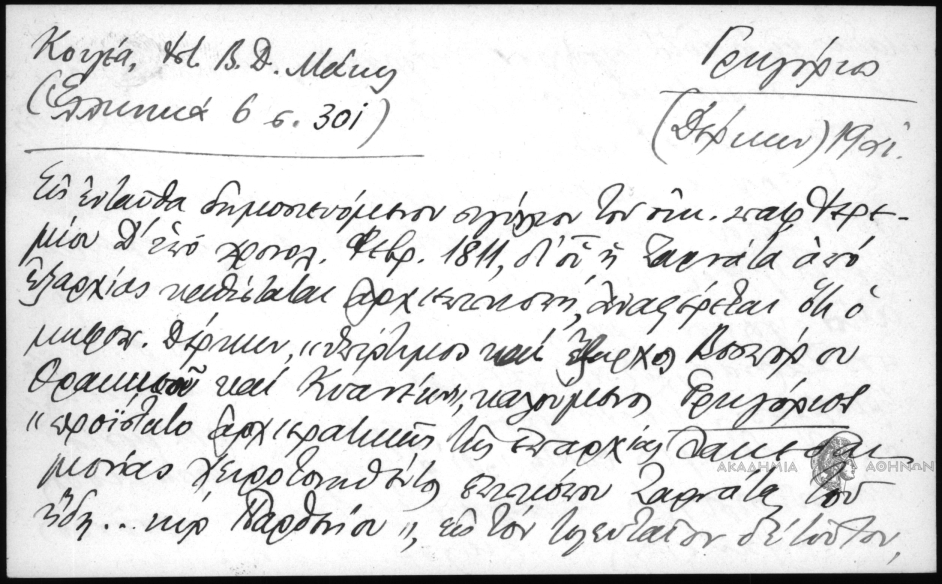 Κουγέα, Ἀθ. Β. Δ. Μάνη
(Ἑλληνικά 6 σ. 301)
Γρηγόριος
(Δέρκων) 1921.
Εἰς ἐνταῦθα δημοσιευόμενον σιγίλλιον τοῦ οἰκ. πατρ. Ἱερε-
μίου Δ' ὑπό χρονολ. Φεβρ. 1811, δι' οὗ ἡ Ζαρνάτα ἀπό
ἐξαρχίας καθίσταται ἀρχιεπισκοπή, ἀναφέρεται ὅτι ὁ
μητροπ. Δέρκων, "ὑπέρτιμος καί ἔξαρχος Βοσπόρου
Θρακικοῦ καί Κυανέων", καλούμενος Γρηγόριος
"προΐστατο ἀρχιερατικῆς τῆς ἐπαρχίας Λακεδαι-
μονίας χειροτονηθείς ἐπισκόπου Ζαρνάτας τοῦ
ἤδη... κύρ Παρθενίου", εἰς τόν τελευταῖον δέ τοῦτον,
ΑΚΑΔΗΜΙΑ ΑΘΗΝΩΝ